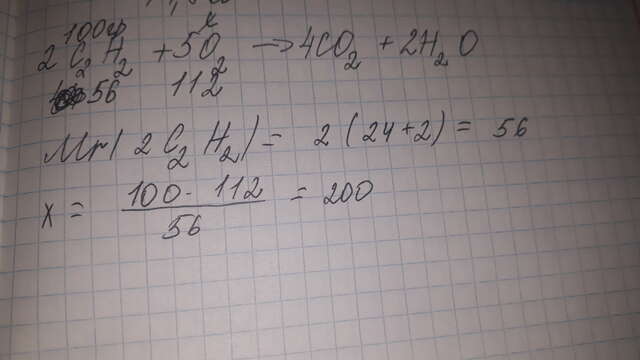 100гр x
2C₂H₂ + 5O₂ → 4CO₂ + 2H₂O
56 112
Mr(2C₂H₂) = 2(24+2) = 56
x = 100 · 112 / 56 = 200